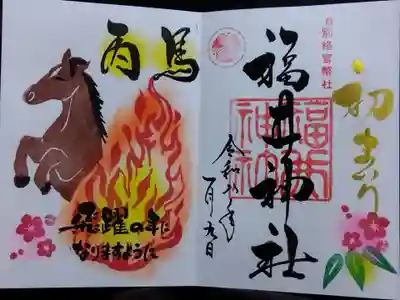 初まいり
旧別格官幣社
福井神社
福井
神社
令和八年
一月九日
丙馬
飛躍の年に
なりますように